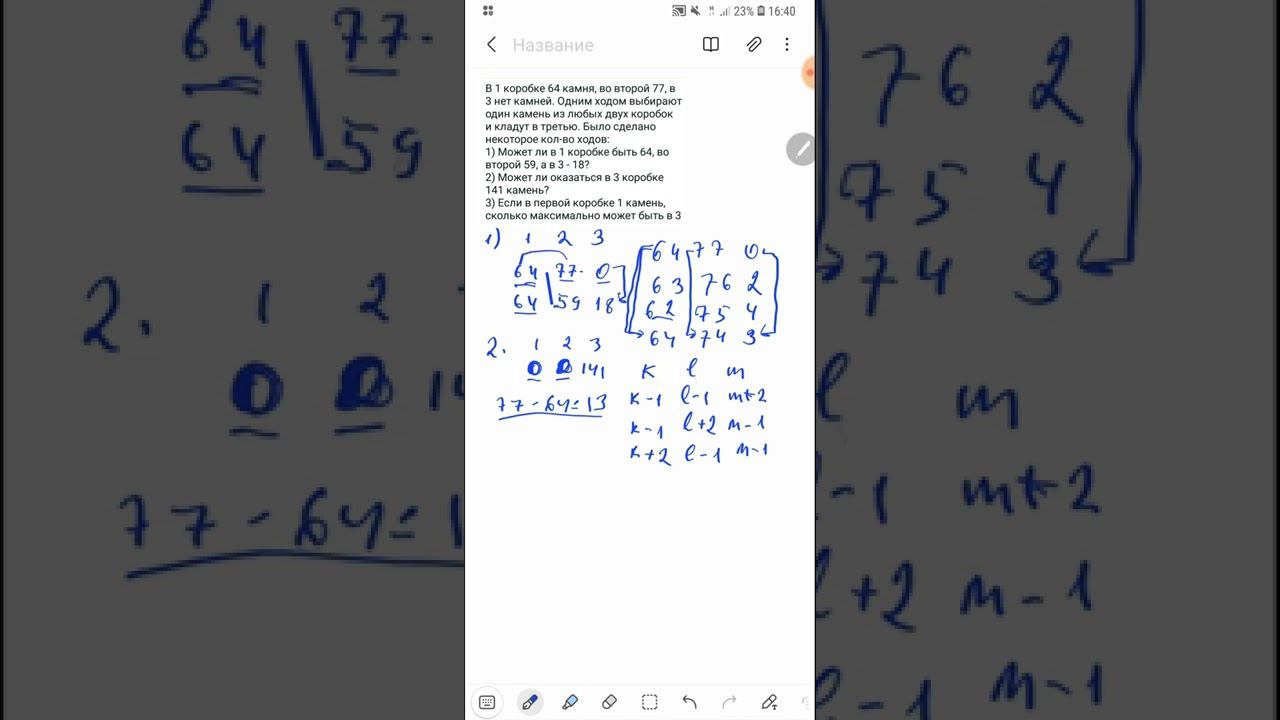 23% 16:40
Название
В 1 коробке 64 камня, во второй 77, в
3 нет камней. Одним ходом выбирают
один камень из любых двух коробок
и кладут в третью. Было сделано
некоторое кол-во ходов:
1) Может ли в 1 коробке быть 64, во
второй 59, а в 3 - 18?
2) Может ли оказаться в 3 коробке
141 камень?
3) Если в первой коробке 1 камень,
сколько максимально может быть в 3
1) 1 2 3
64 77 0
64 59 18
64 77 0
63 76 2
62 75 4
64 74 3
2. 1 2 3
0 0 141
77-64=13
k l m
k-1 l-1 m+2
k-1 l+2 m-1
k+2 l-1 m-1